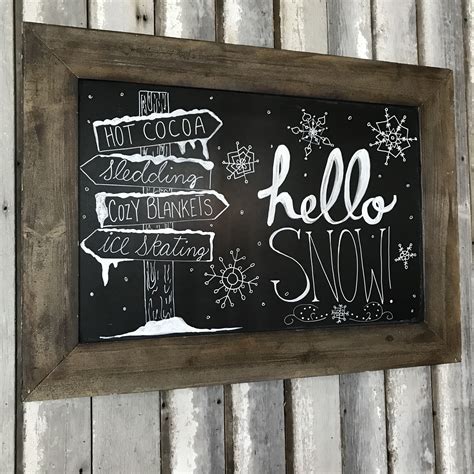 HOT COCOA
Sledding
COZY BLANKETS
ice skating
hello
SNOW!